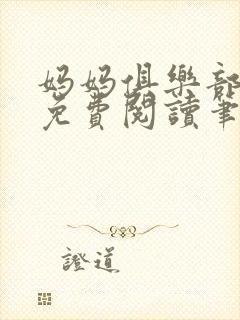 媽媽俱樂部
免費閱讀筆
證道